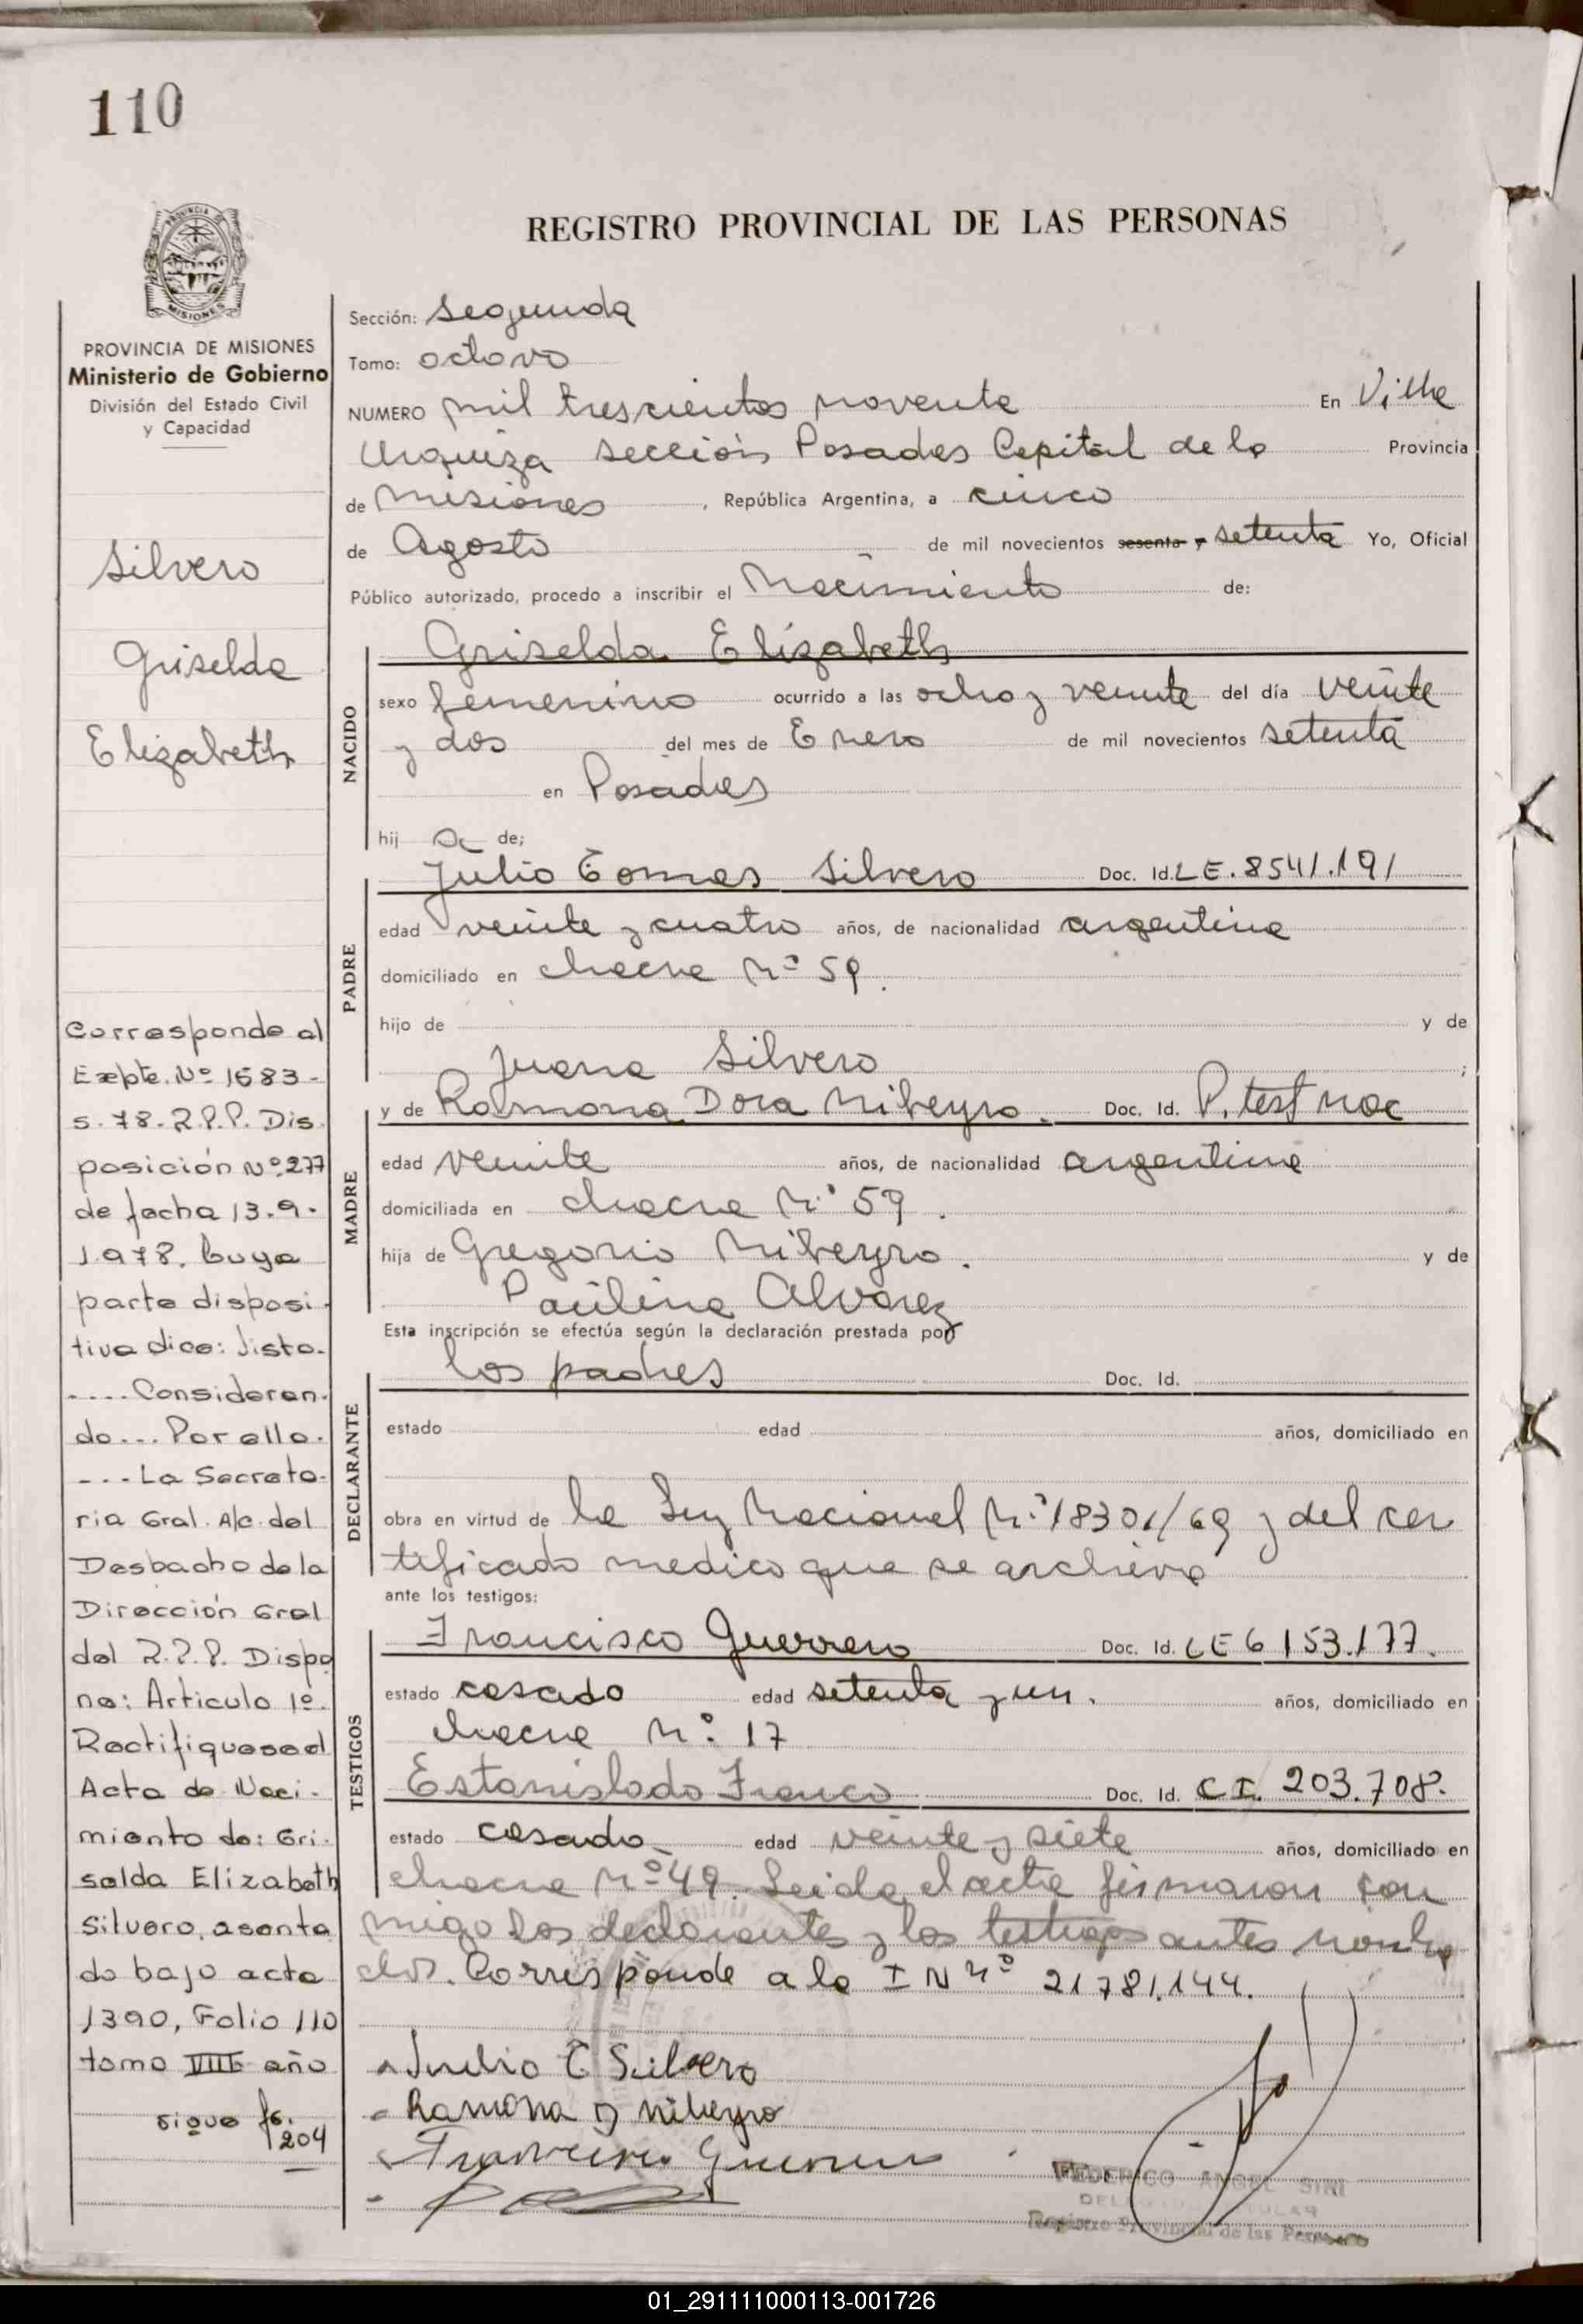 110
REGISTRO PROVINCIAL DE LAS PERSONAS
PROVINCIA DE
MISIONES
PROVINCIA DE MISIONES
Ministerio de Gobierno
División del Estado Civil
y Capacidad
Silvero
Griselda
Elizabeth
Corresponde al
Expte. Nº 1683-
s. 78. R.P.P. Dis
posición Nº 277
de fecha 13.9.
1.978. Cuya
parte disposi
tiva dice: Visto.
.... Consideran.
do... Por ello.
... La Secreta-
ria Gral. A/c. del
Despacho de la
Dirección Gral
del R.P.P. Dispo
ne: Articulo 1º.
Rectifiquese el
Acta de Naci-
miento de: Gri-
selda Elizabeth
Silvero, asenta
do bajo acta
1390, Folio 110
tomo VIII año
sigue fs.
204
Sección: Segunda
Tomo: octavo
NUMERO mil trescientos noventa En Villa
Urquiza sección Posadas Capital de la Provincia
de Misiones , República Argentina, a cinco
de Agosto de mil novecientos sesenta y setenta Yo, Oficial
Público autorizado, procedo a inscribir el Nacimiento de:
NACIDO
Griselda Elizabeth
sexo femenino ocurrido a las ocho y veinte del día veinte
y dos del mes de Enero de mil novecientos setenta
en Posadas
hij a de;
PADRE
Julio Tomas Silvero Doc. Id. L E. 8541.191
edad veinte y cuatro años, de nacionalidad argentina
domiciliado en chacra Nº 59.
hijo de y de
Juana Silvero ;
MADRE
y de Ramona Dora Nibeyro. Doc. Id. P. test nac
edad veinte años, de nacionalidad argentina
domiciliada en chacra Nº 59.
hija de Gregorio Nibeyro. y de
Paulina Alvarez
Esta inscripción se efectúa según la declaración prestada por
DECLARANTE
los padres Doc. Id.
estado edad años, domiciliado en
obra en virtud de la Ley Nacional Nº 18301/69 y del cer
tificado medico que se archiva
ante los testigos:
TESTIGOS
Francisco Guerrero Doc. Id. L E 6 153.177.
estado casado edad setenta y un. años, domiciliado en
chacra Nº 17
Estanislado Franco Doc. Id. C I. 203.708.
estado casado edad veinte y siete años, domiciliado en
chacra Nº 49. Leida el acta firmaron con
migo los declarantes y los testigos antes nombra
dos. Corresponde a la I N nº 21781.144.
Julio T Silvero
Ramona D Nibeyro
Francisco Guerrero
FEDERICO ANGEL SIRI
DELEGADO TITULAR
Registro Provincial de las Personas
01_291111000113-001726